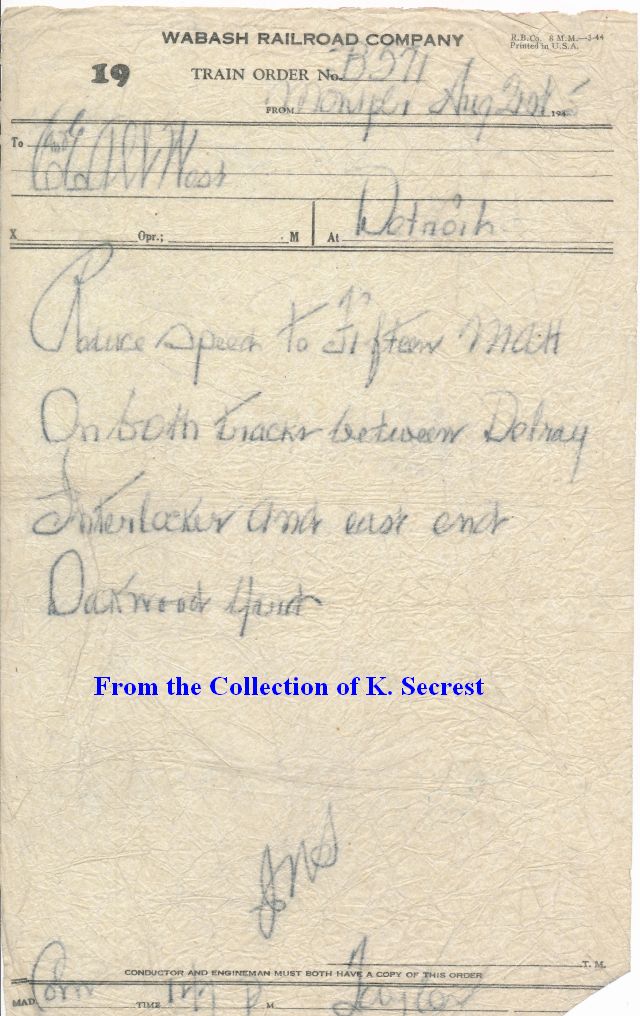 WABASH RAILROAD COMPANY
R.B.Co. 8 M.M.—3-44
Printed in U.S.A.
19 TRAIN ORDER No. B571
FROM Montpr Aug 21st 1945
To C&E All West
X Opr.; M At Detroit
Reduce speed to Fifteen 15 MPH
On both tracks between Delray
Interlocker and east end
Oakwood Yard
From the Collection of K. Secrest
JNS
T. M.
CONDUCTOR AND ENGINEMAN MUST BOTH HAVE A COPY OF THIS ORDER
MAD. Com TIME P M Taylor